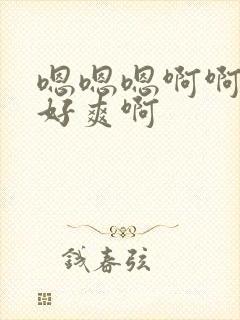 嗯嗯嗯啊啊
好爽啊
钱春弦